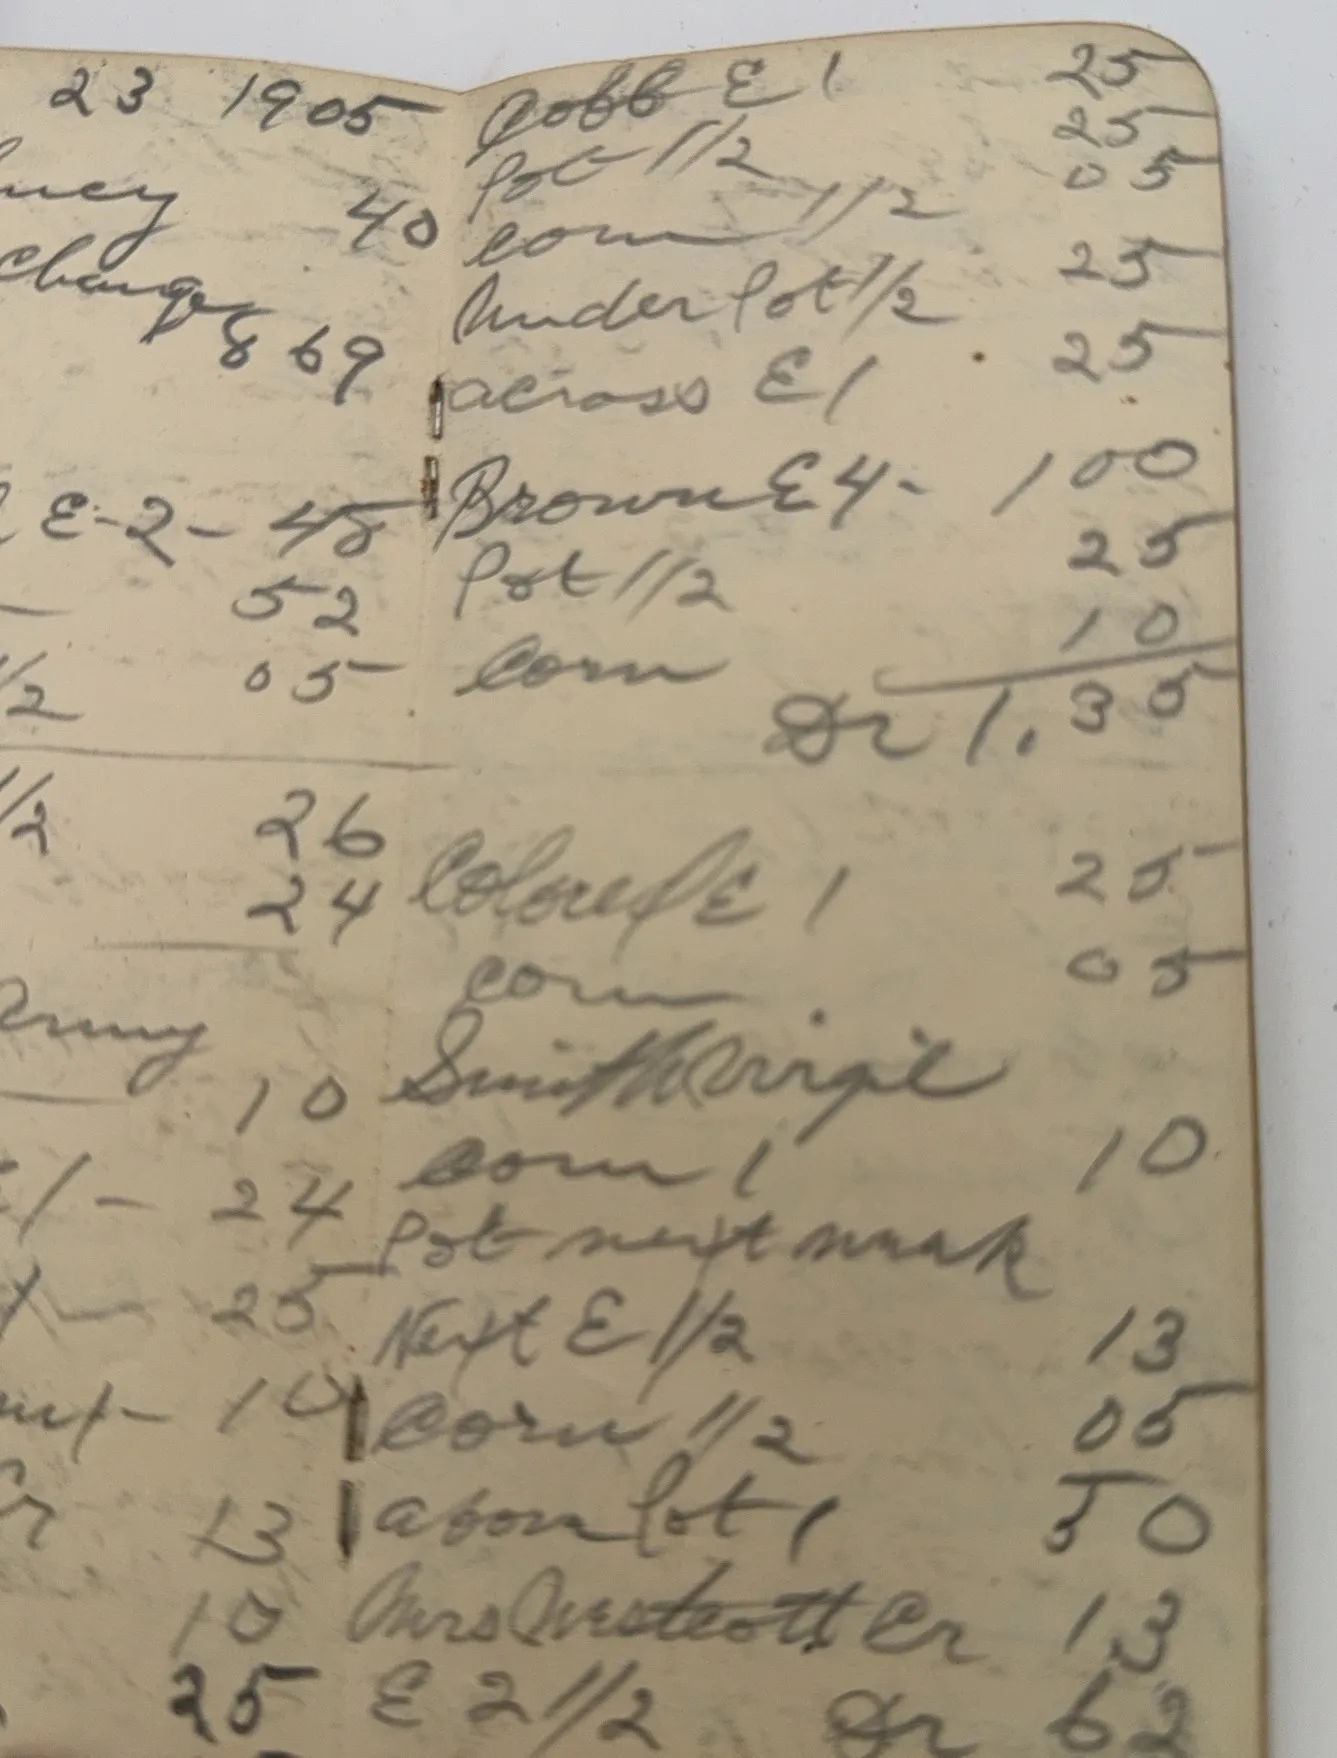 23 1905
40
Change
8 69
E-2- 48
52
1/2 05
1/2 26
24
10
E1- 24
25
10
Cr
13
10
25
Cobb E 1 25
Pot 1/2 25
corn 1/2 05
Under Pot 1/2 25
across E 1 25
Brown E 4- 100
Pot 1/2 25
Corn 10
Dr 1.35
Colored E 1 25
corn 05
Smith Virgil
Corn 1 10
Pot next week
Next E 1/2 13
Corn 1/2 05
above Pot 1 50
Mrs Westcott Cr 13
E 2 1/2 Dr 62